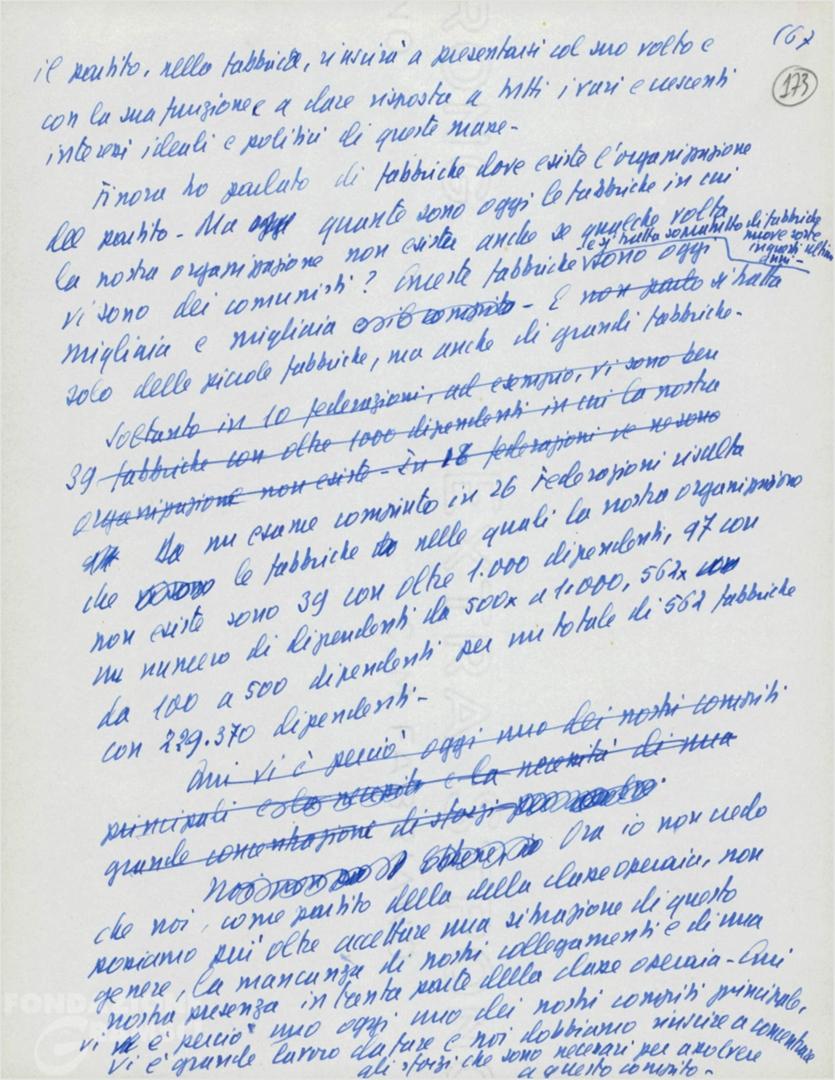 (6)
173
il partito, nella fabbrica, riuscirà a presentarsi col suo volto e
con la sua funzione e a dare risposta a tutti i vari e crescenti
interessi ideali e politici di queste masse -
Finora ho parlato di fabbriche dove esiste l'organizzazione
del partito - Ma oggi quante sono oggi le fabbriche in cui
la nostra organizzazione non esiste anche se qualche volta
vi sono dei comunisti? Queste fabbriche sono oggi
e si tratta soprattutto di fabbriche
nuove sorte
in questi ultimi
anni -
migliaia e migliaia - E non parlo si tratta
solo delle piccole fabbriche, ma anche di grandi fabbriche -
Soltanto in 10 federazioni, ad esempio, vi sono ben
39 fabbriche con oltre 1000 dipendenti in cui la nostra
organizzazione non esiste - In 18 federazioni ve ne sono
Da un esame compiuto in 26 Federazioni risulta
che le fabbriche nelle quali la nostra organizzazione
non esiste sono 39 con oltre 1.000 dipendenti, 97 con
un numero di dipendenti da 500 a 1.000, 562
da 100 a 500 dipendenti per un totale di 562 fabbriche
con 229.370 dipendenti -
Qui vi è perciò oggi uno dei nostri compiti
principali e la necessità di una
grande concentrazione di sforzi
Noi non Ora io non credo
che noi, come partito della della classe operaia, non
possiamo più oltre accettare una situazione di questo
genere, la mancanza di nostri collegamenti e di una
nostra presenza in tanta parte della classe operaia - Qui
vi è perciò uno oggi uno dei nostri compiti principale,
vi è grande lavoro da fare e noi dobbiamo riuscire a concentrare
gli sforzi che sono necessari per assolvere
a questo compito -
FONDAZIONE